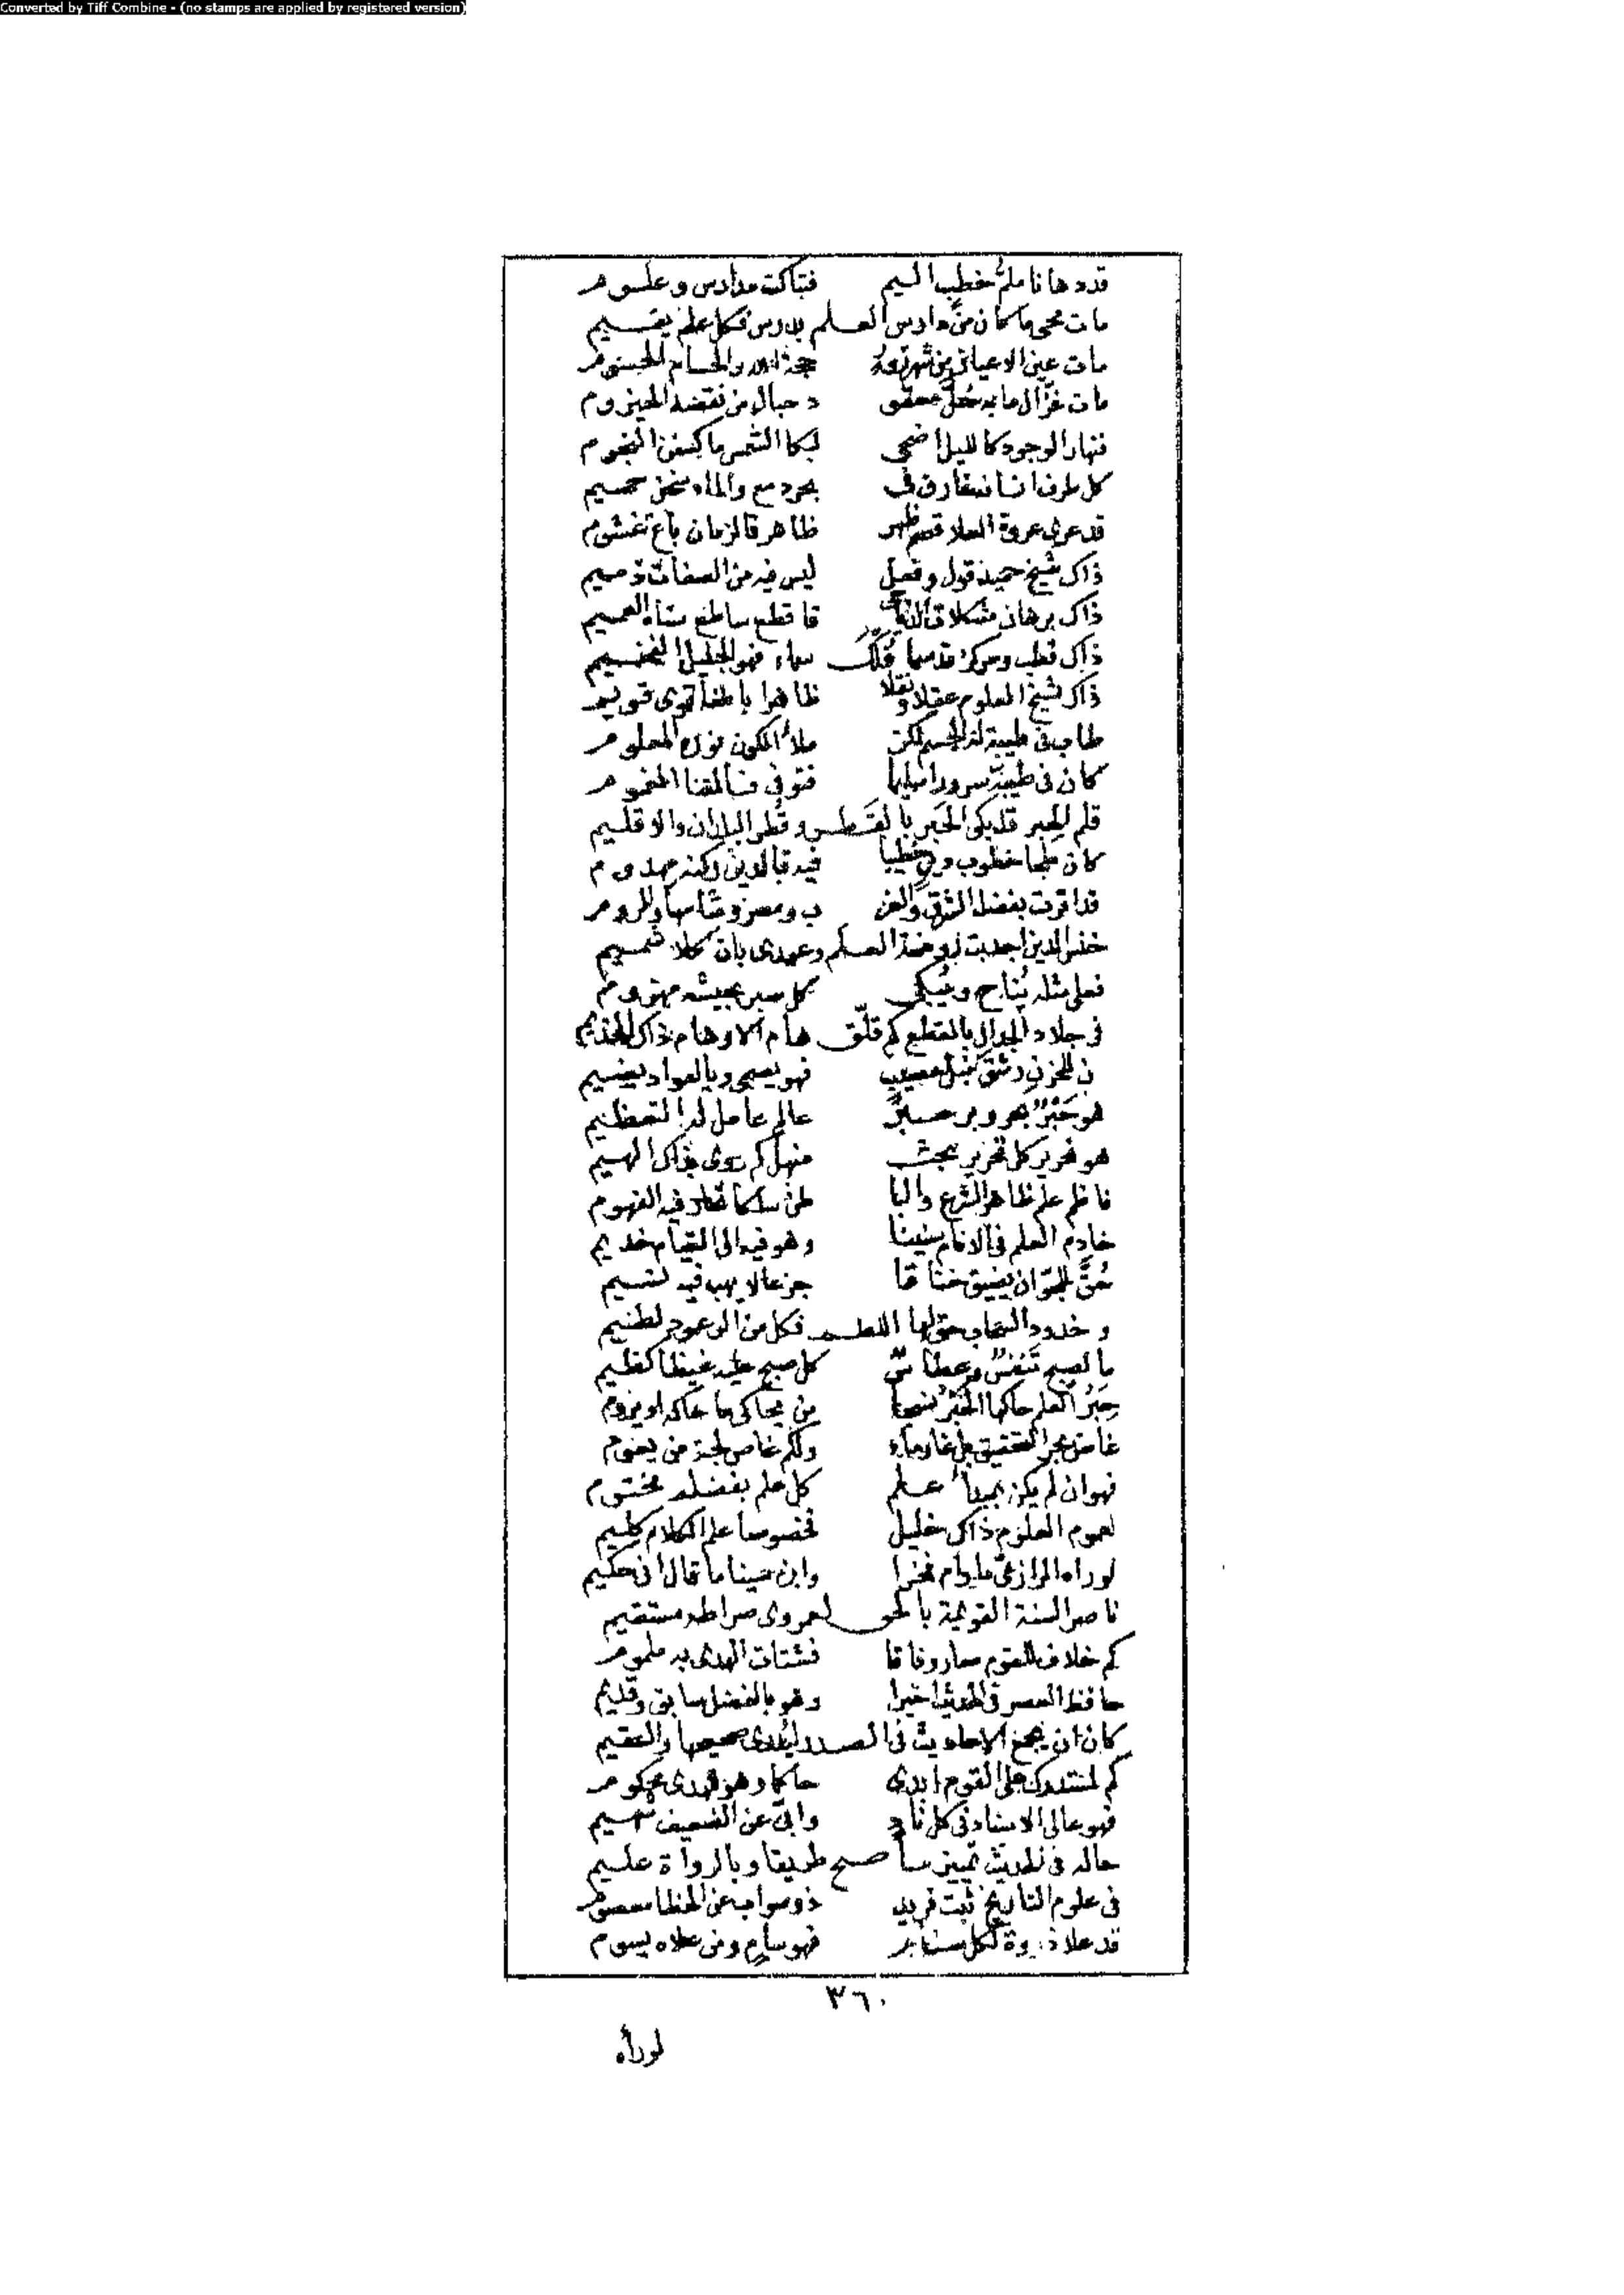 Converted by Tiff Combine - (no stamps are applied by registered version)
قد دهانا ملمّ خطب اليم فتباكت مدارس وعلوم
مات محي ما كان من دارس العلم بدرس فكل علم يقيم
مات عين الاعيان من شهرته حجة الله والحسام الحسوم
مات غزّال ما به حُلّ معقو د حبال من نقضه الحيزوم
فنهار الوجود كالليل اضحى لبكا الشمس ما كسفن النجوم
كل طرف انسانه غارق في بحر دمع والماء سخن حميم
قد عرى عروة العلا قصم ظهر ظاهر فالزمان باغ غشوم
ذاك شيخ حميد قول وفعل ليس فيه من الصفات ذميم
ذاك برهان مشكلات قاطع ساطع سناه العميم
ذاك قطب ومركز قد سما فلك سماء فهو الجليل الفخيم
ذاك شيخ العلوم عقلا ونقلا ظاهرا باطنا قوى قويم
طاب في طيبة له الجسم لكن ملأ الكون نوره المعلوم
كان في طيبة سرورا فتوفي
قلم الحبر قد بكى الحبر بالقطر وقطر البلدان والاقليم
كان ملجا خطوب فيه فالدين ركنه مهدوم
قد اقرت بفضله الشرق والغر ب ومصر وشامها والروم
خضر الدين اجدبت روضة العلم وعهدى بان كلا شميم
فعلى مثله يُناح ويُبكى كل صبر بجيشه مهزوم
في جلاد الجدال بالقطع كم فلّق هام الاوهام ذاك
للحزن رشق نبل مصيب فهو يصمى وبالفواد يضيم
هو حَبْرٌ بحر وبر عالم عامل له التعظيم
هو نحرير كل تحرير بحث منهل كم روى بذاك الهيم
ناظم علم ظاهر الشرع والبا طن سلكا تحار فيه الفهوم
خادم العلم في الانام سنينا وهو فيه الى القيام خديم
حُقّ للجوّ ان يضيق خناقا جزعا لا يهب فيه نسيم
وخدود السحاب حق لها اللطم فكل من الرعود لطيم
ما لصبح تنفسٌ وعطاسٌ كل صبح عليه غيظا كظيم
حِبَرُ العلم حاكها الحَبْرُ نسجا من يحاكى ما حاكه او يروم
غاص بحر التحقيق ولكم غاص لجة من يعوم
فهو ان لم يكن بمبدأ علم كل علم بفضله مختوم
لعموم العلوم ذاك خليل فخصوصا علم الكلام كليم
لو راه الرازي ما دام فخرا وابن سينا ما قال اني حكيم
ناصر السنة القويمة بالحق لعمروى صراطه مستقيم
كم خلاف للقوم صار وفاقا فشتات الهدى به ملموم
حافظ العصر في الحديث اخيرا وهو بالفضل سابق وقديم
كان ان يجمع الاحاديث في الصدر ليُبدى صحيحها والسقيم
كم لمستدرك على القوم ابدى حاكما وهو محكوم
فهو عالى الاسناد في كل ناد وابيّ عن الضعيف
حاله في الحديث تمييز ما صح طريقا وبالرواة عليم
في علوم التاريخ ثبت فريد ذو صواب عن الخطا معصوم
قد علا ذروة لكل سنام فهو سام ومن علاه يسوم
٣٦٠
لوراه